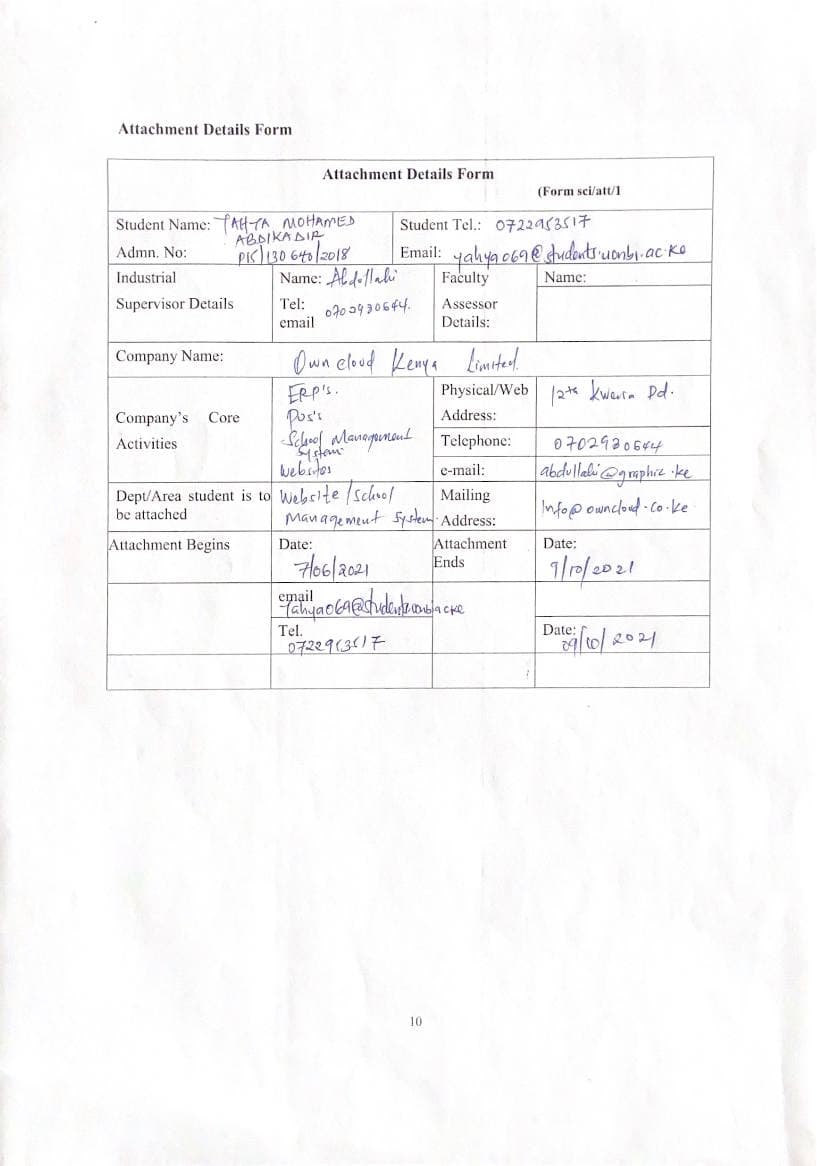 Attachment Details Form
Attachment Details Form
(Form sci/att/1
Student Name: YAHYA MOHAMED
ABDIKADIR
Student Tel.: 0722953517
Admn. No: P15/130640/2018
Email: yahya069@students.uonbi.ac.ke
Industrial
Supervisor Details
Name: Abdullahi
Tel: 0702930644.
email
Faculty
Assessor
Details:
Name:
Company Name: Owncloud Kenya Limited.
Company's Core
Activities
ERP's.
POS's
School Management
System
Websites
Physical/Web
Address:
12th Rd.
Telephone: 0702930644
e-mail: abdullahi@graphic.ke
Dept/Area student is to
be attached
Website/School
Management System.
Mailing
Address:
Info@owncloud.co.ke
Attachment Begins
Date:
7/06/2021
Attachment
Ends
Date:
9/10/2021
email
Yahya069@students.uonbi.ac.ke
Tel.
0722953517
Date:
09/10/2021
10